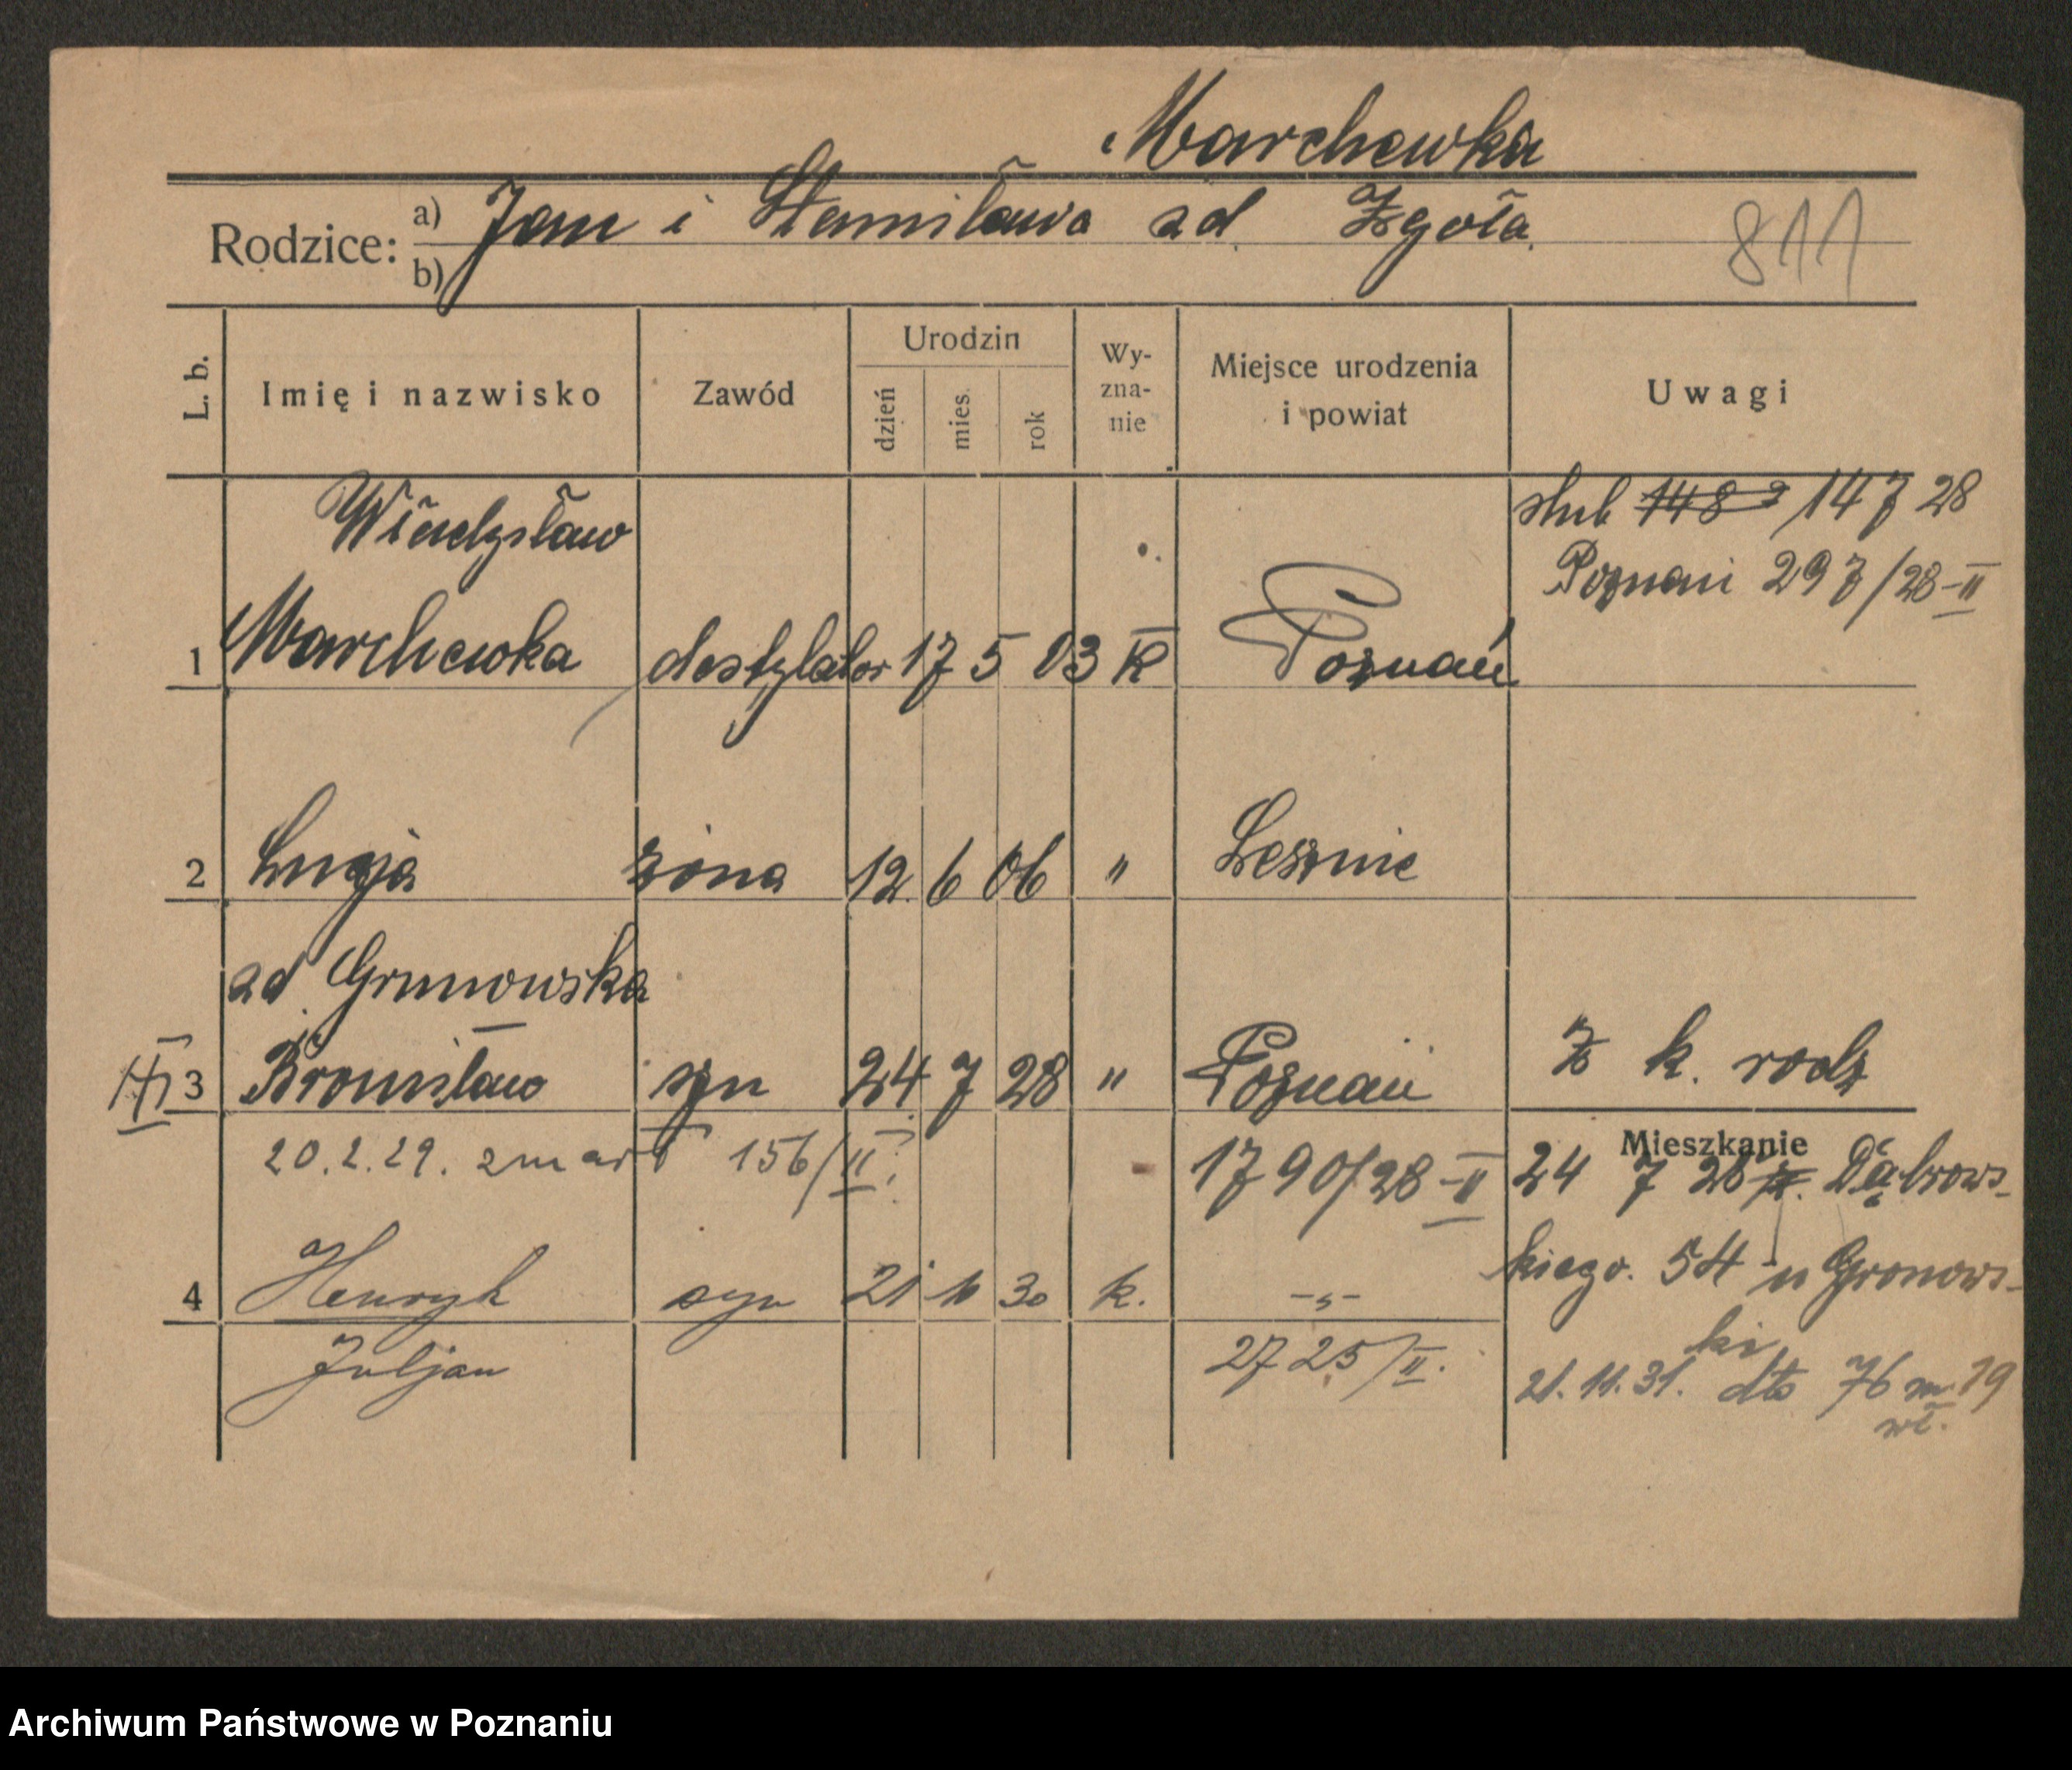 Marchewka
Rodzice: a) Jan i Stanisława zd. Zgoła.
b)
811
L. b. Imię i nazwisko Zawód Urodzin dzień mies. rok Wy-zna-nie Miejsce urodzenia i powiat Uwagi
Władysław
ślub 148 2 14 7 28
Poznań 297/28-II
1 Marchewka destylator 17 5 03 K Poznań
2 Łucja żona 12. 6 06 " Leszno
zd Grunowska
3 Bronisław syn 24 7 28 " Poznań Z k. rodz
20.2.29. zmarł 156/II. 1790/28-II
Mieszkanie
24 7 28 Dąbrows-
kiego. 54 u Gronows-
ki
4 Henryk syn 21 30 k. -"-
Juljan 2725/II.
21.11.31. dto 76 m. 19
wł.
Archiwum Państwowe w Poznaniu